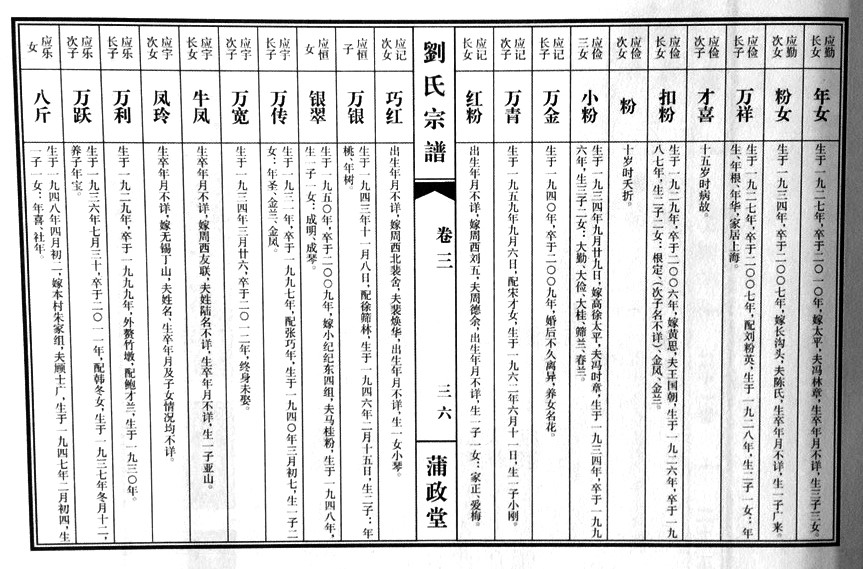 应勤
长女
年女
生于一九二七年，卒于二〇一〇年，嫁太平，夫冯林章，生卒年月不详，生三子二女。
应勤
次女
粉女
生于一九三四年，卒于二〇〇七年，嫁长沟头，夫陈氏，生卒年月不详，生一子广来。
应俭
长子
万祥
生于一九二七年，卒于二〇〇七年，配刘粉英，生于一九二八年，生二子一女：年
生、年根、年华，家居上海。
应俭
次子
才喜
十五岁时病故。
应俭
长女
扣粉
生于一九二九年，卒于二〇〇六年，嫁黄思，夫王国朝，生于一九二六年，卒于一九
八七年，生二子二女：根定，（次子名不详）、金凤、金兰。
应俭
次女
粉
十岁时夭折。
应俭
三女
小粉
生于一九三四年九月廿九日，嫁高徐太平，夫冯时章，生于一九三四年，卒于一九九
六年，生三子二女：大勤、大俭、大桂、筛兰、春兰。
应记
长子
万金
生于一九四〇年，卒于二〇〇九年，婚后不久离异，养女名花。
应记
次子
万青
生于一九五九年九月六日，配宋才女，生于一九六二年六月十一日，生一子小刚。
应记
长女
红粉
出生年月不详，嫁周西刘五，夫周德余，出生年月不详，生一子一女：家正、爱梅。
劉氏宗譜
卷三
三六
蒲政堂
应记
次女
巧红
出生年月不详，嫁周西北裴舍，夫裴焕华，出生年月不详，生一女小琴。
应恒
子
万银
生于一九四三年十一月八日，配徐筛林，生于一九四六年二月十五日，生二子：年
桃、年树。
应恒
女
银翠
生于一九五〇年，卒于二〇〇九年，嫁小纪纪东四组，夫马桂粉，生于一九四八年，
生一子一女：成明、成琴。
应宇
长子
万传
生于一九三一年，卒于一九九七年，配张巧年，生于一九四〇年三月初七，生一子二
女：年圣、金兰、金凤。
应宇
次子
万宽
生于一九三四年三月廿六，卒于二〇一二年，终身未娶。
应宇
长女
牛凤
生卒年月不详，嫁周西友联，夫姓陆名不详，生卒年月不详，生一子亚山。
应宇
次女
凤玲
生卒年月不详，嫁无锡丁山，夫姓名、生卒年月及子女情况均不详。
应乐
长子
万利
生于一九二九年，卒于一九九九年，外赘竹墩，配鲍才兰，生于一九三〇年。
应乐
次子
万跃
生于一九三六年七月三十，卒于二〇一一年，配韩冬女，生于一九三七年冬月十二，
养子年宝。
应乐
女
八斤
生于一九四八年四月初二，嫁本村朱家组，夫顾十广，生于一九四七年二月初四，生
一子一女：年喜、社年。